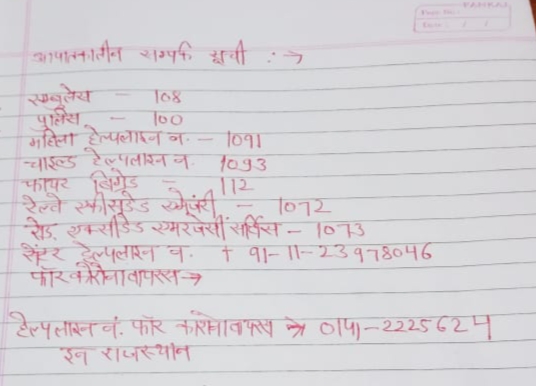 आपातकालीन सम्पर्क सूची :→
एम्बुलेंस - 108
पुलिस - 100
महिला हेल्पलाइन न. - 1091
चाइल्ड हेल्पलाइन न. 1093
फायर ब्रिगेड - 112
रेल्वे एक्सीडेंड - 1072
रोड एक्सीडेंड एमरजेंसी सर्विस - 1073
सेंटर हेल्पलाइन न. +91-11-23978046
फॉर कोरोनावायरस →
हेल्पलाइन नं. फॉर कोरोनावायरस → 0141-2225624
इन राजस्थान